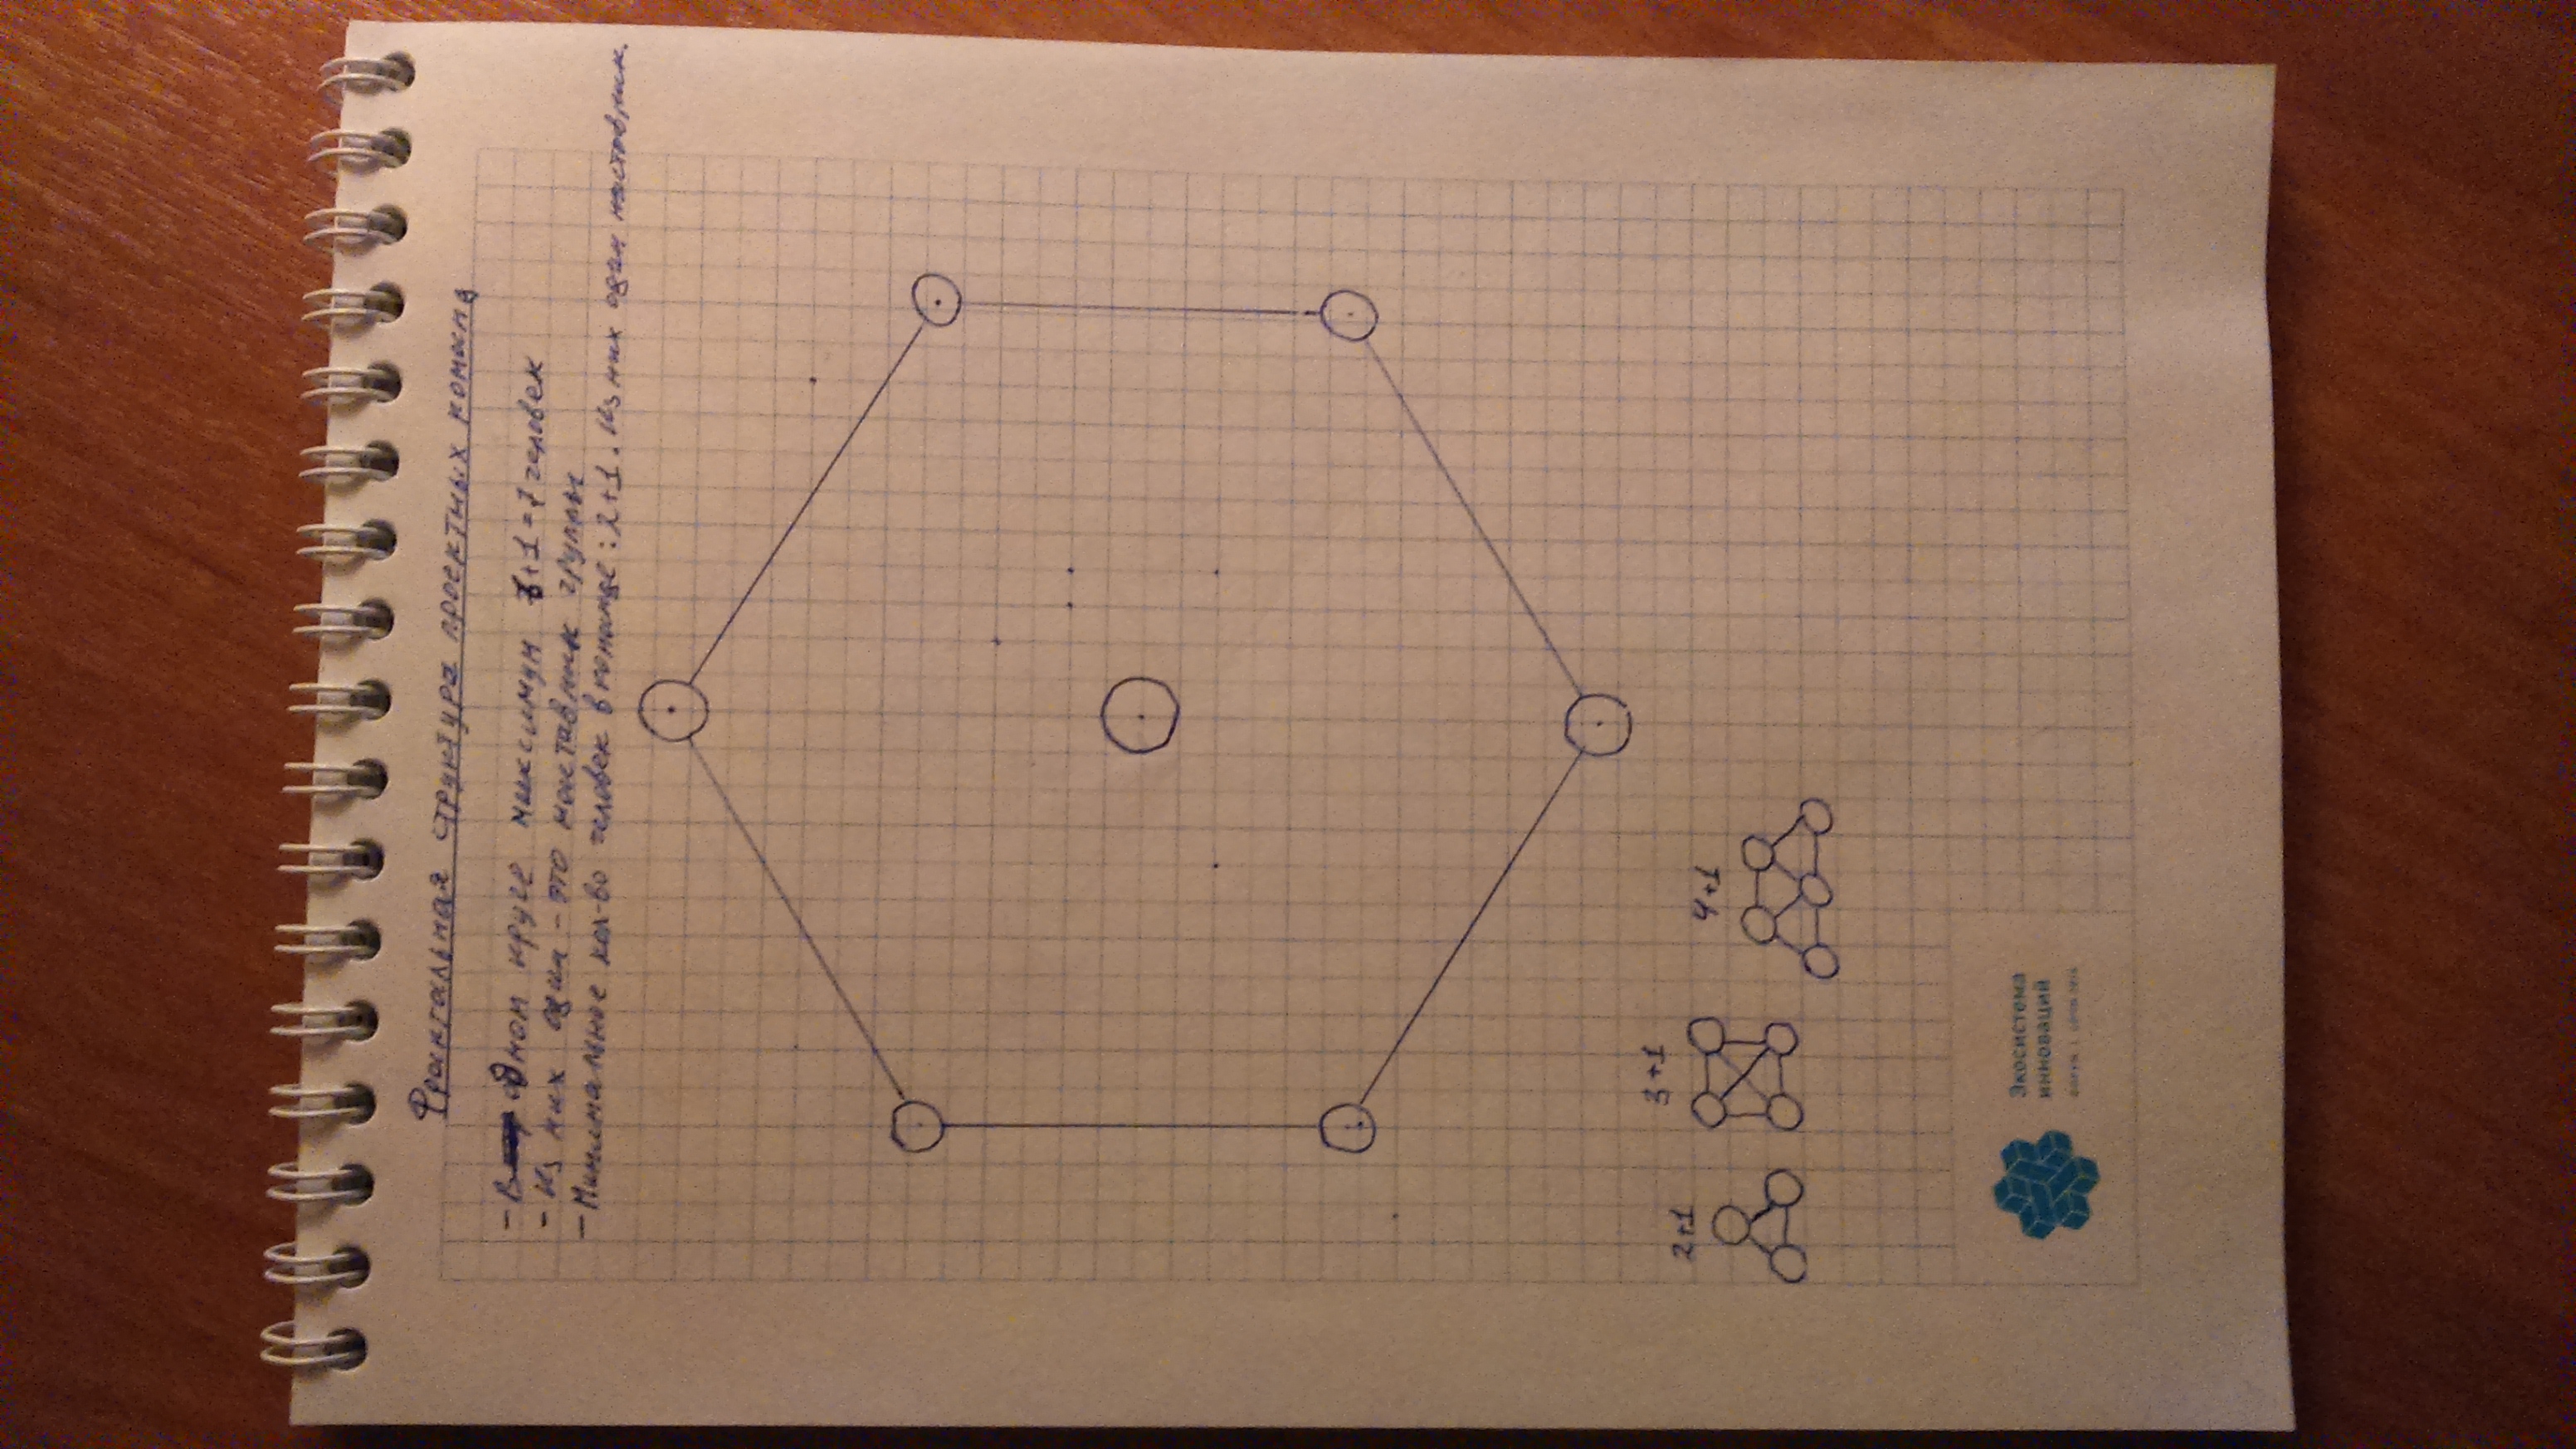 Фрактальная структура проектных команд
- В одном круге максимум 6+1=7 человек
- Из них один - это наставник группы
- Минимальное кол-во человек в команде: 2+1. Из них один наставник.
2+1 3+1 4+1
Экосистема
инноваций